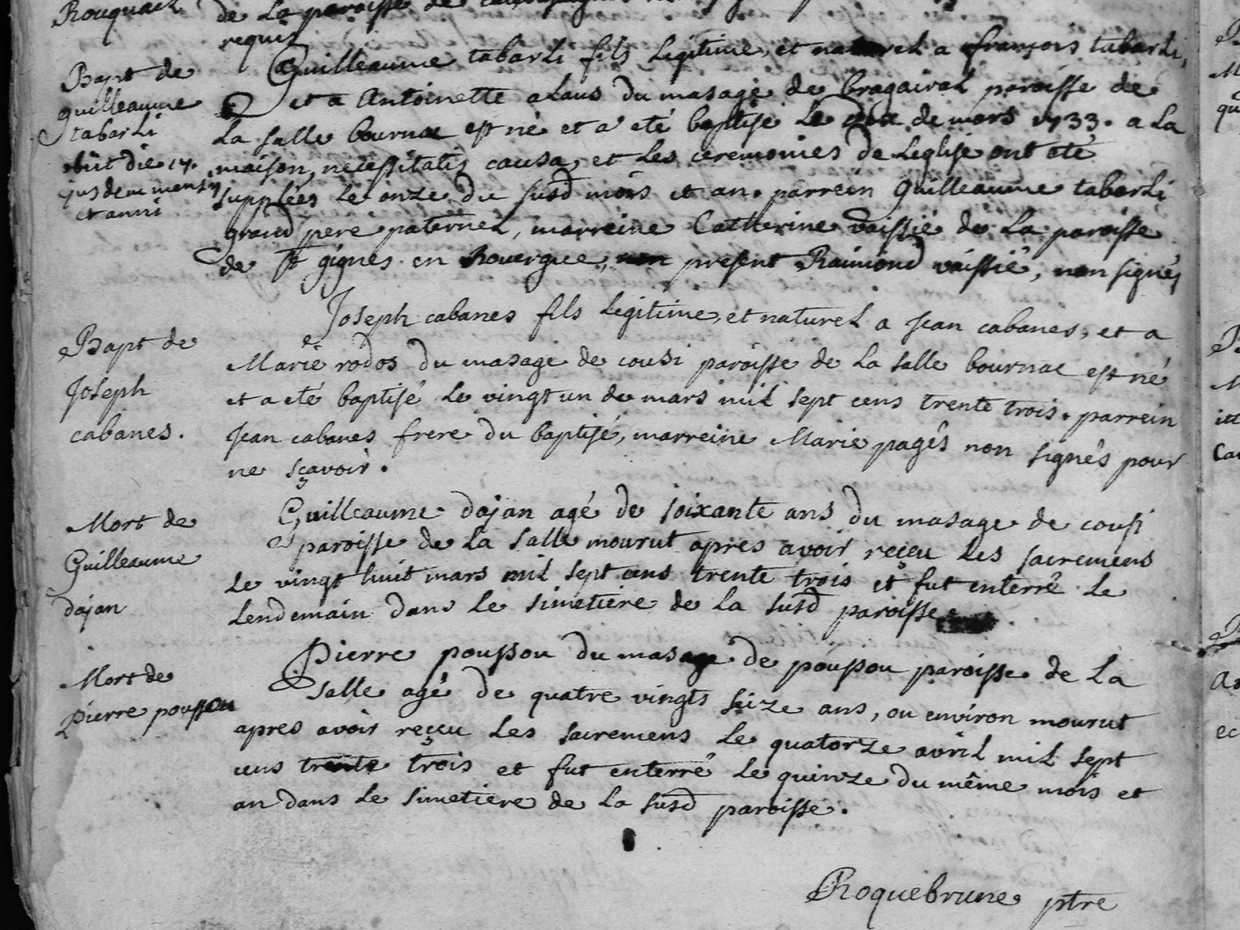 Rouquach
de La paroisse de
requis
Bapt de
guilleaume
tabarli
obiit die 17.
jusdem mensis
et anni
Guilleaume tabarli fils Legitime, et naturel a françois tabarli,
et a Antoinette alaus du masage de bragairal paroisse de
La salle bournac est né et a été baptisé Le dix de mars 1733. a La
maison, necessitatis causa, et Les ceremonies de Leglise ont été
supplées Le onze du susd mois et an. parrein Guilleaume tabarli
grand pere paternel, marreine Catherine vaissié de La paroisse
de St gignés en Rouergue, present Raimond vaissié, non signés
Bapt de
Joseph
cabanes.
Joseph cabanes fils Legitime, et naturel a Jean cabanes, et a
Marie rodos du masage de cousi paroisse de La salle bournac est né
et a eté baptisé Le vingt un de mars mil sept cens trente trois. parrein
Jean cabanes frere du baptisé, marreine Marie pagés non signés pour
ne sçavoir.
Mort de
Guilleaume
dajan
Guilleaume dajan agé de soixante ans du masage de cousi
paroisse de La salle mourut apres avoir reçeu Les sacremens
Le vingt huit mars mil sept cens trente trois et fut enterré Le
Lendemain dans Le simetiere de La susd paroisse
Mort de
pierre poussou
Pierre poussou du masage de poussou paroisse de La
salle agé de quatre vingts seize ans, ou environ mourut
apres avoir reçeu Les sacremens Le quatorze avril mil sept
cens trente trois et fut enterré Le quinze du même mois et
an dans Le simetiere de La susd paroisse.
Roquebrune ptre